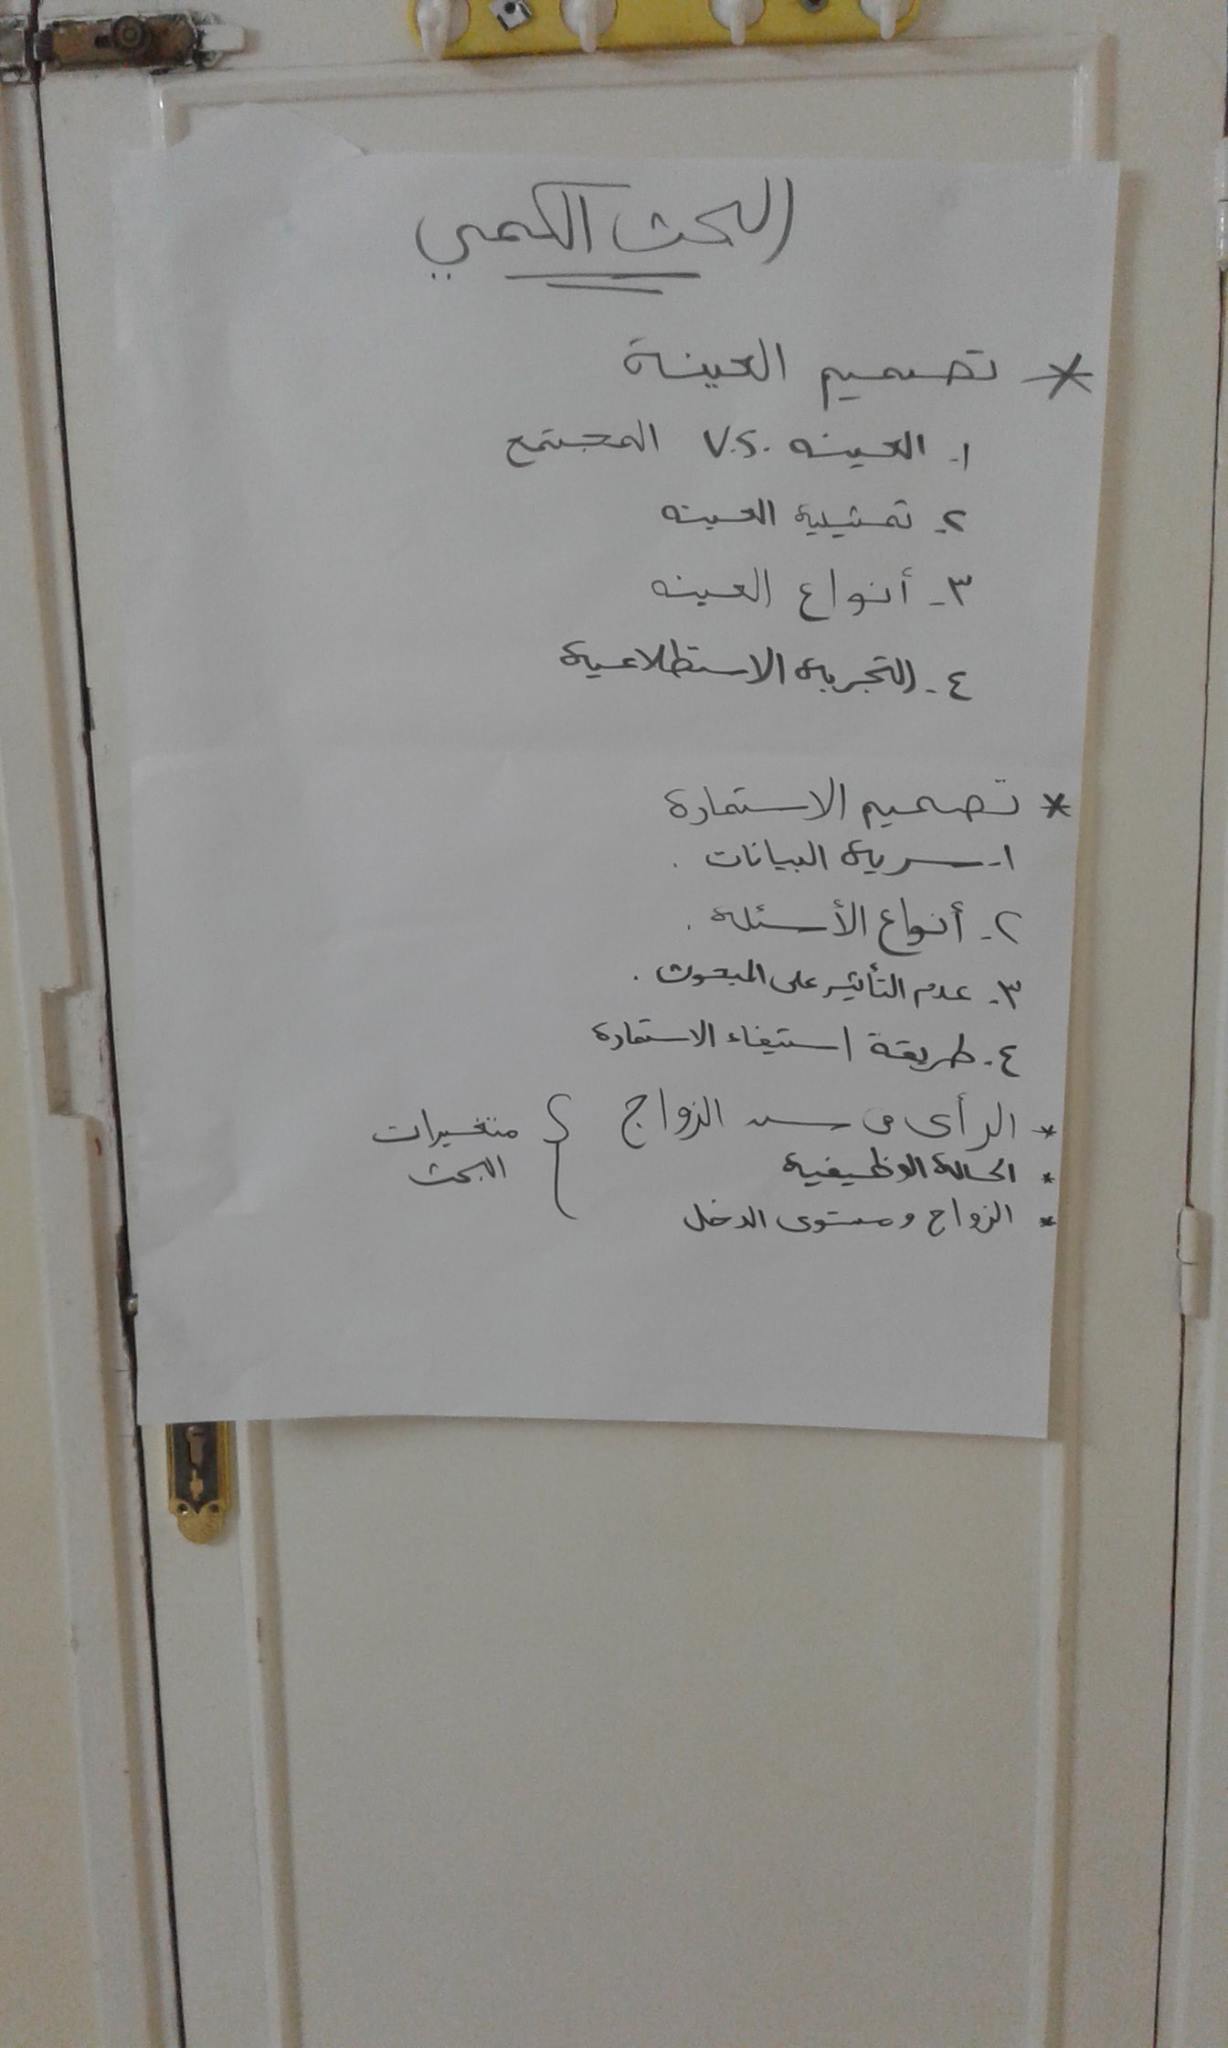 البحث الكمي
* تصميم العينة
١- العينه V.S. المجتمع
٢- تمثيلية العينه
٣- أنواع العينه
٤- التجربة الاستطلاعية
* تصميم الاستمارة
١- سرية البيانات .
٢- أنواع الأسئلة .
٣- عدم التأثير على المبحوث .
٤- طريقة استيفاء الاستمارة
* الرأى فى سن الزواج } متغيرات
* الحالة الوظيفية البحث
* الزواج ومستوى الدخل